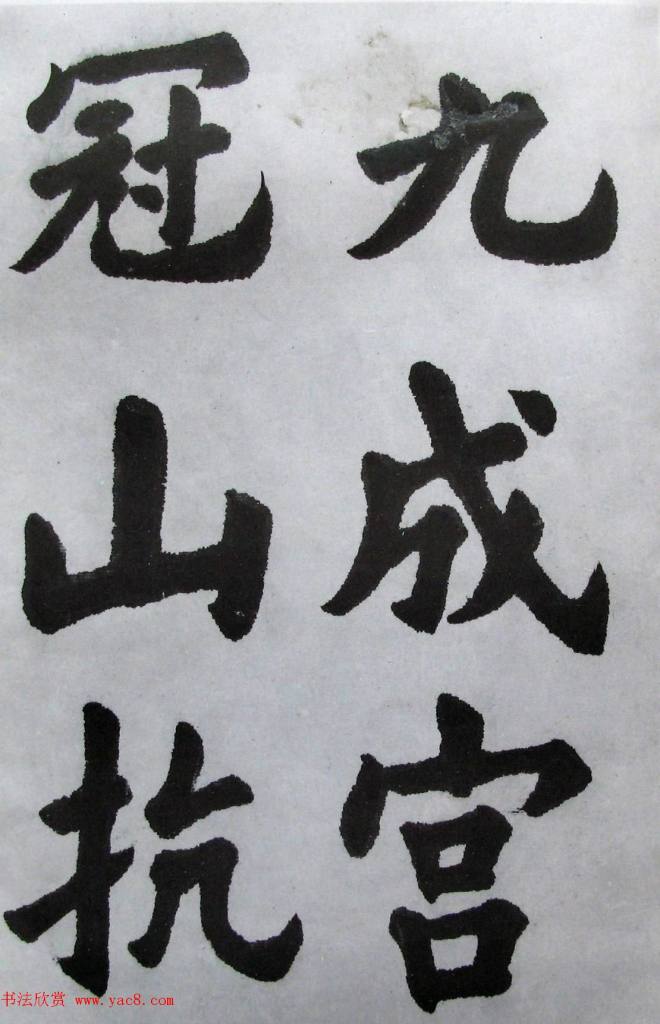 九成宫
冠山抗
书法欣赏 www.yac8.com